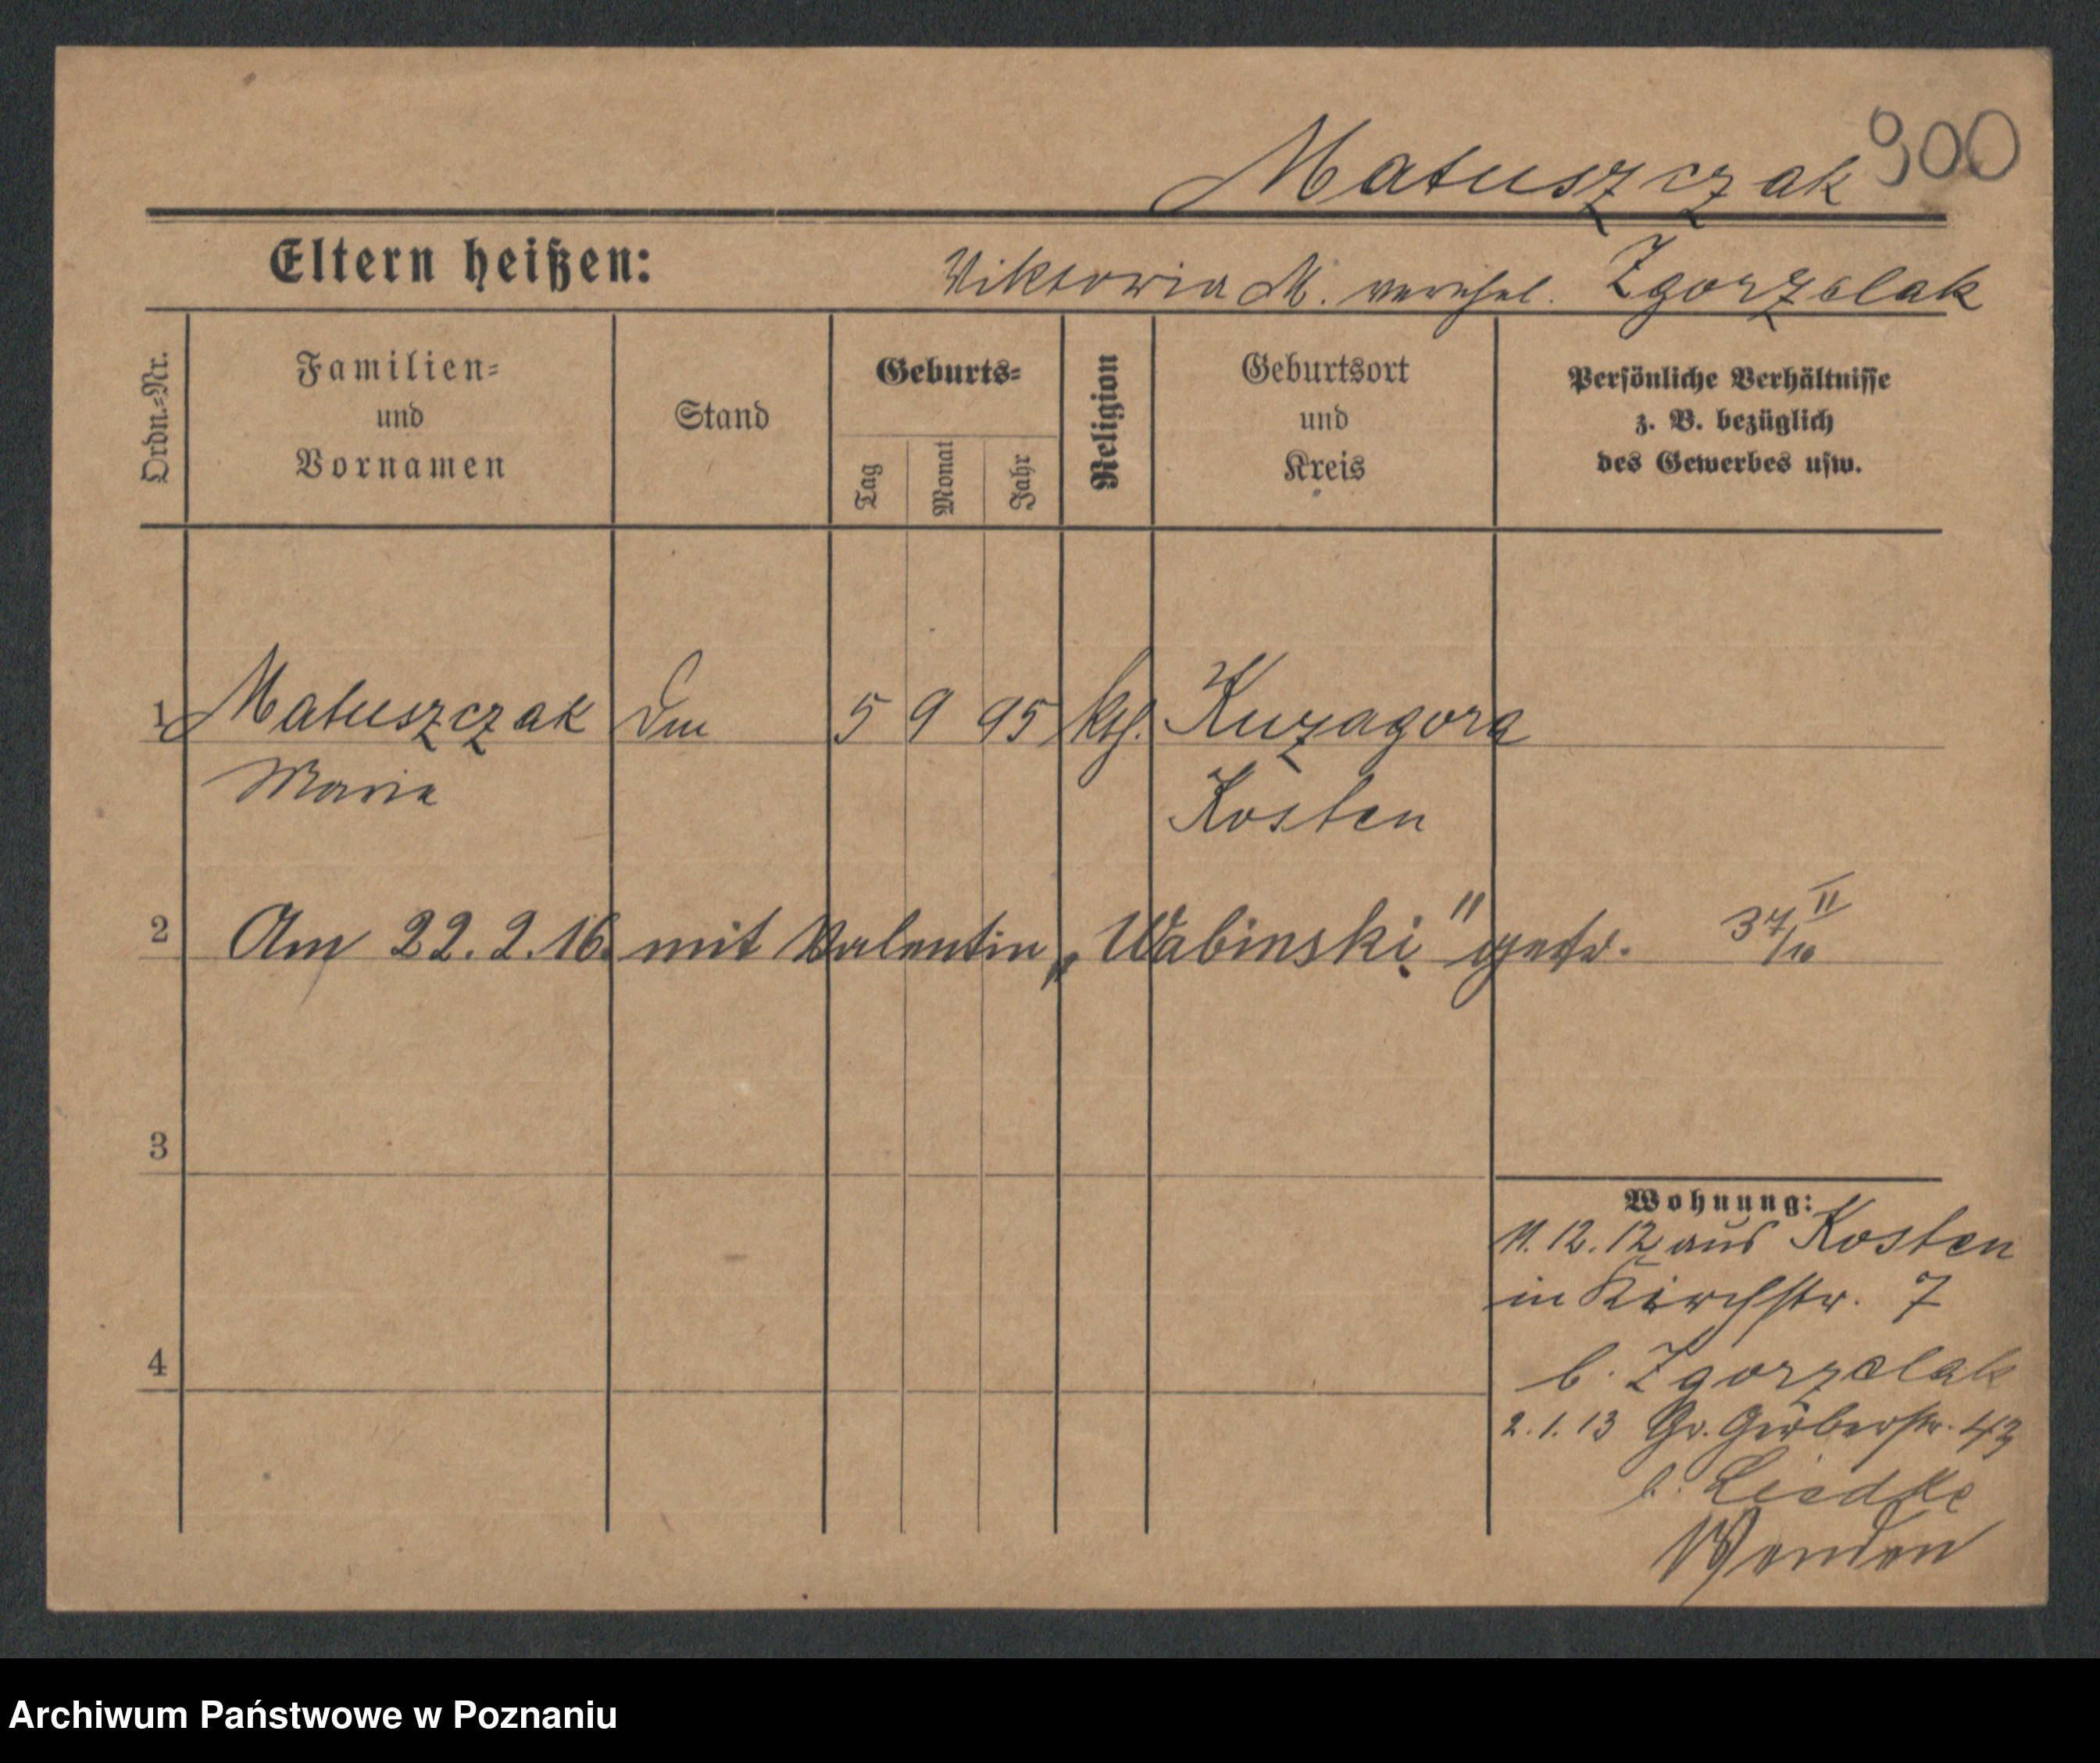 Matuszczak 900
Eltern heißen: Viktoria M. verehel. Zgorzelak
Ordn.-Nr.
Familien-
und
Vornamen
Stand
Geburts-
Tag
Monat
Jahr
Religion
Geburtsort
und
Kreis
Persönliche Verhältnisse
z. B. bezüglich
des Gewerbes usw.
1 Matuszczak 5 9 95 kth. Kuzagora
Maria Kosten
2 Am 22. 2. 16. mit Valentin „Wabinski" getr. 37/10 II
3
4
Wohnung:
11. 12. 12 aus Kosten
in Kirchstr. 7
b. Zgorzelak
2. 1. 13 Gr. Gerberstr. 43
b. Liedke